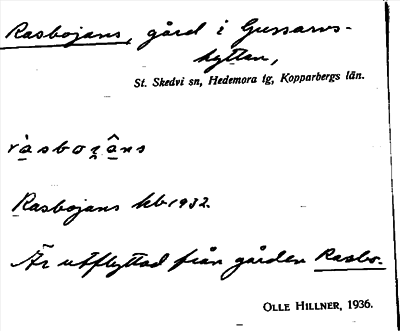 Rasbojans, gård i Gussarvs-
hyttan,
St. Skedvi sn, Hedemora tg, Kopparbergs län.
ràsboʝâns
Rasbojans kb 1932.
Är utflyttad från gården Rasbo.
OLLE HILLNER, 1936.